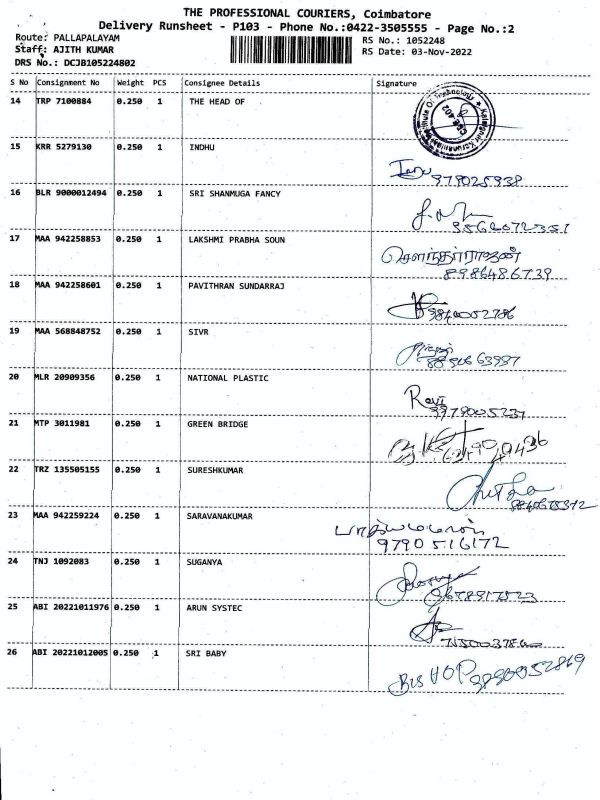 THE PROFESSIONAL COURIERS, Coimbatore
Delivery Runsheet - P103 - Phone No.:0422-3505555 - Page No.:2
Route: PALLAPALAYAM
RS No.: 1052248
Staff: AJITH KUMAR
RS Date: 03-Nov-2022
DRS No.: DCJB105224802
S No Consignment No Weight PCS Consignee Details Signature
14 TRP 7100884 0.250 1 THE HEAD OF
15 KRR 5279130 0.250 1 INDHU
16 BLR 9000012494 0.250 1 SRI SHANMUGA FANCY
17 MAA 942258853 0.250 1 LAKSHMI PRABHA SOUN
சௌந்தர்ராஜன்
8986486739
18 MAA 942258601 0.250 1 PAVITHRAN SUNDARRAJ
19 MAA 568848752 0.250 1 SIVR
20 MLR 20909356 0.250 1 NATIONAL PLASTIC
Ravi
21 MTP 3011981 0.250 1 GREEN BRIDGE
22 TRZ 135505155 0.250 1 SURESHKUMAR
23 MAA 942259224 0.250 1 SARAVANAKUMAR
9790516172
24 TNJ 1092083 0.250 1 SUGANYA
25 ABI 20221011976 0.250 1 ARUN SYSTEC
26 ABI 20221012005 0.250 1 SRI BABY